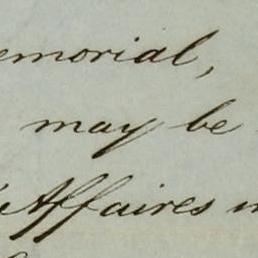 emorial,
may be
d'Affaires